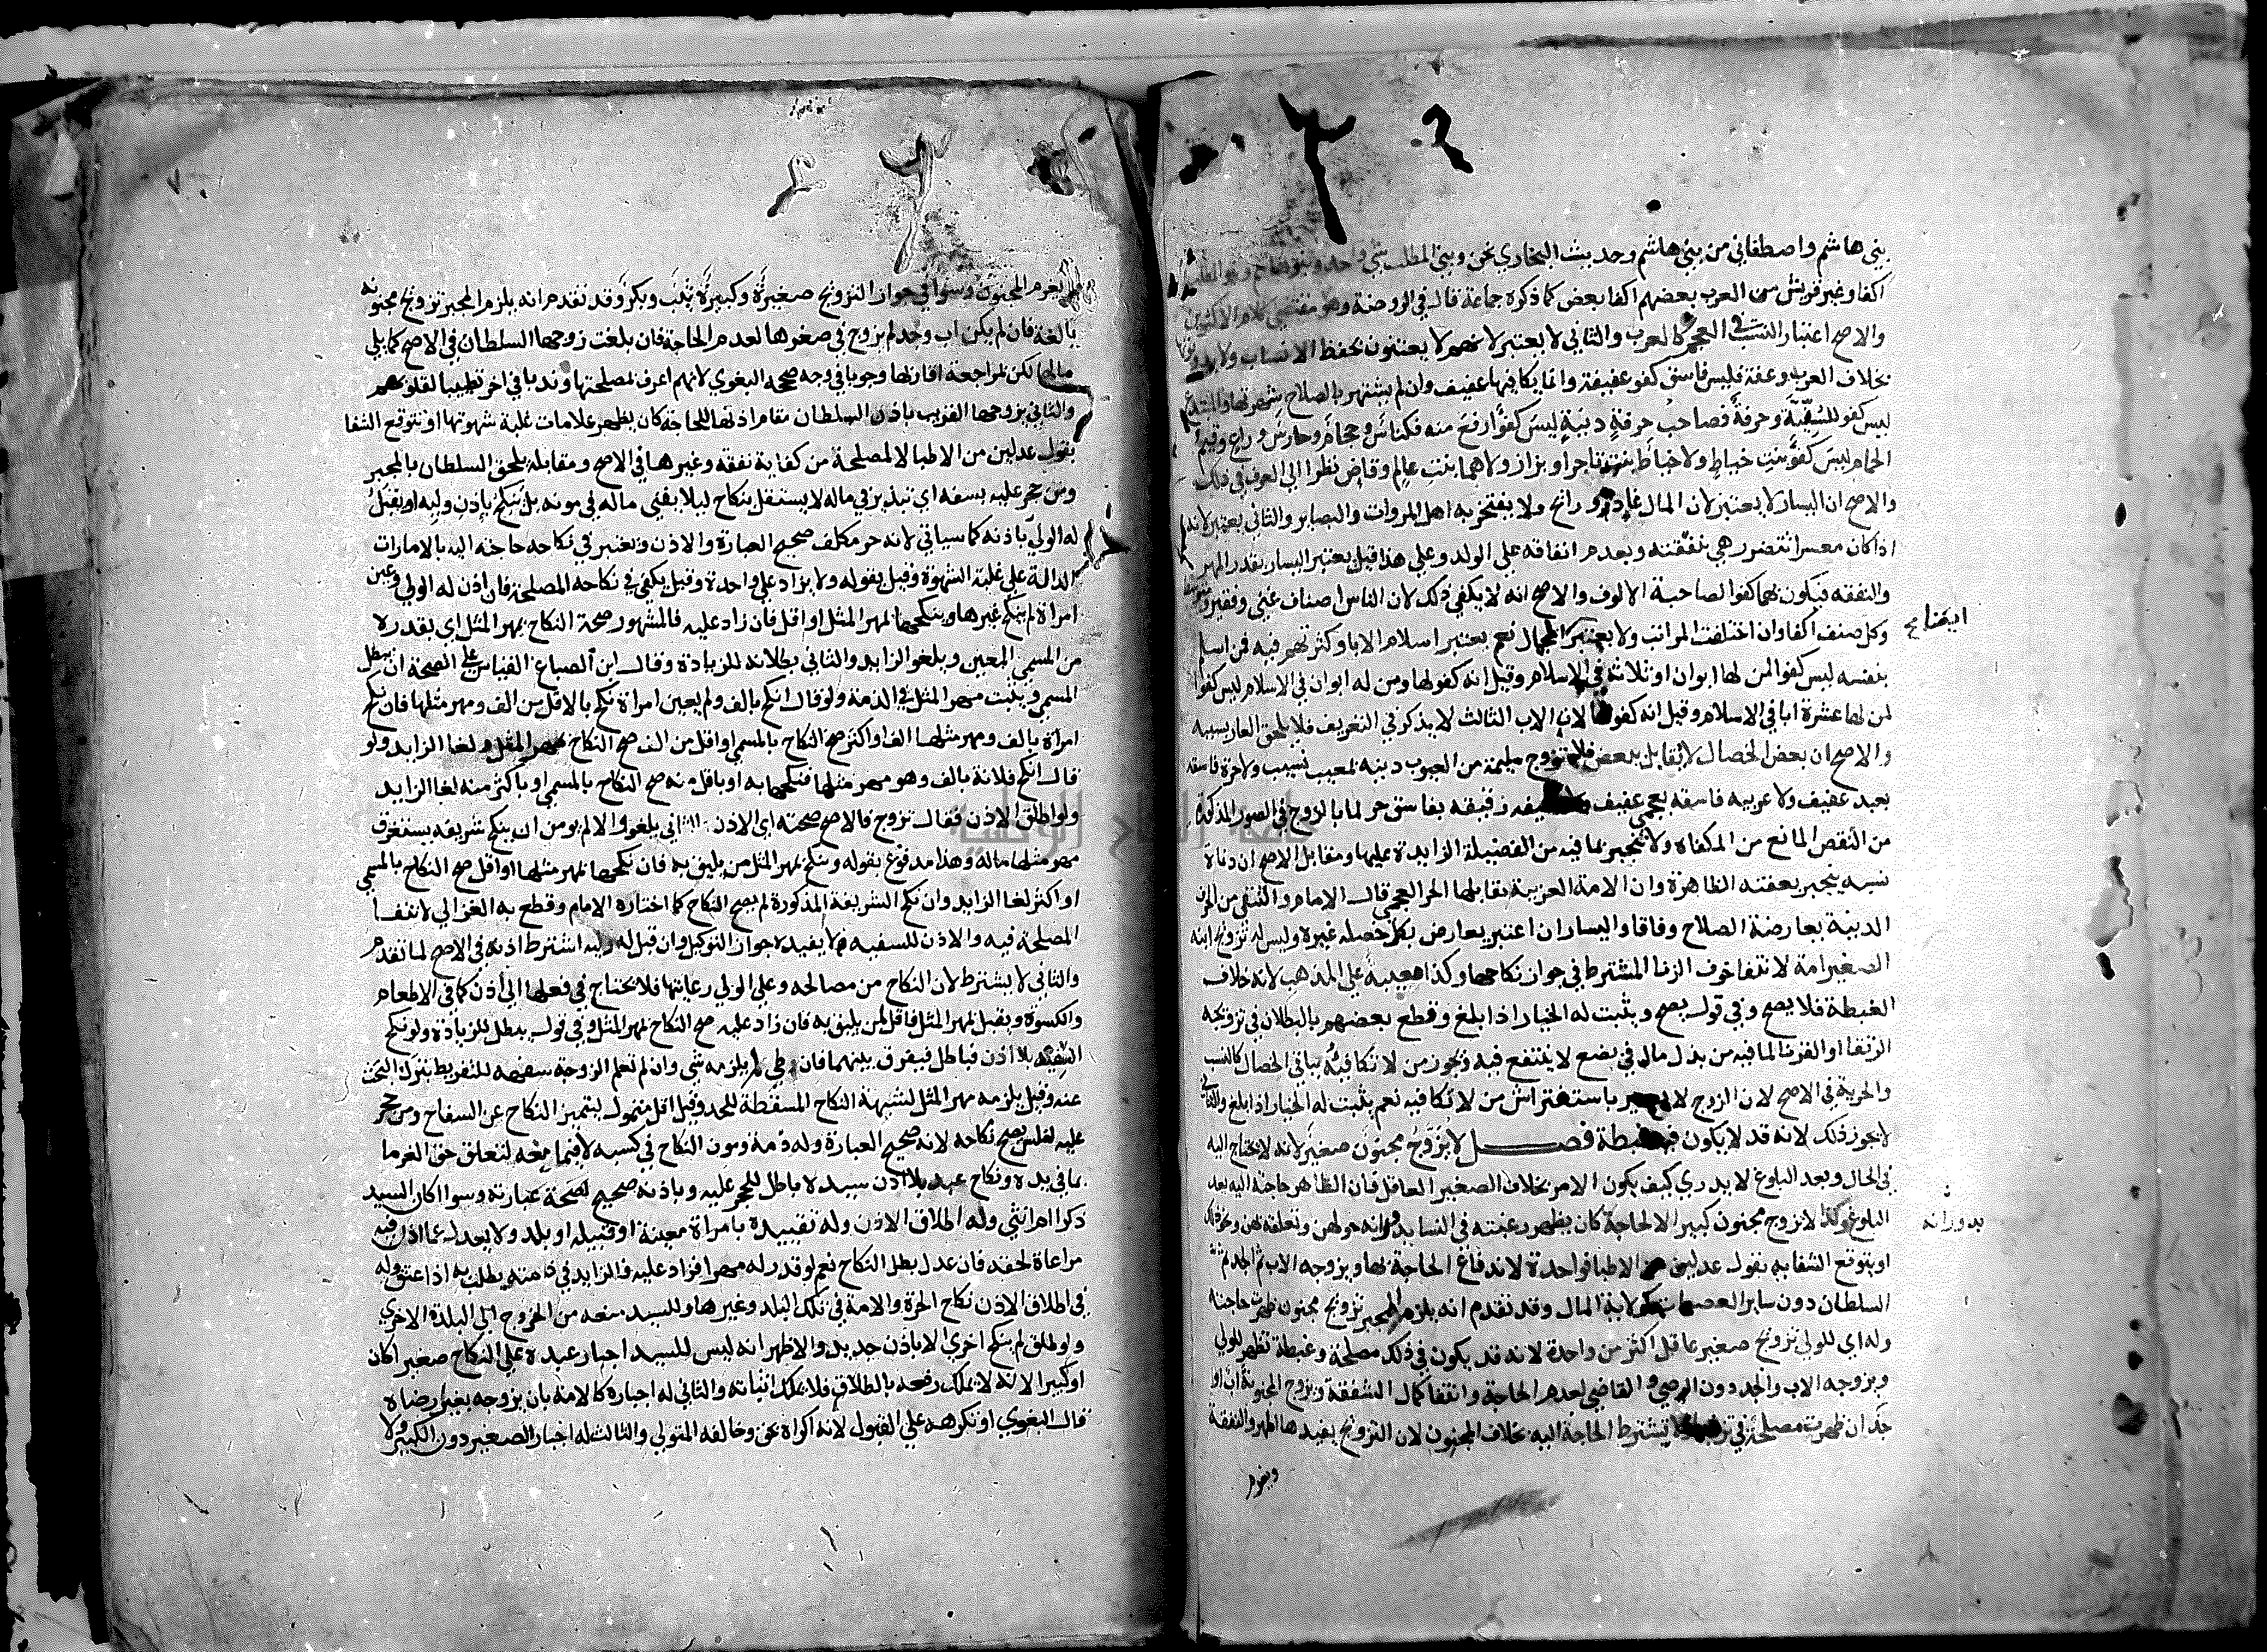 بني هاشم واصطفاني من بني هاشم وحديث البخاري نحن وبني المطلب شي واحد وبنو هاشم وبنو المطلب
اكفا وغير قريش من العرب بعضهم اكفا بعض كما ذكره جماعة قال في الروضة وهو مقتضي كلام الاكثرين
والاصح اعتبار النسب في العجم كالعرب والثاني لا يعتبر لانهم لا يعتنون بحفظ الانساب ولا يدونونها
بخلاف العرب وعفة فليس فاسق كفو عفيفة وانما يكافيها عفيف وان لم يشتهر بالصلاح شهرتها والمبتدع
ليس كفو للسُنِّيَّة وحرفة فصاحب حرفةٍ دنيَةٍ ليس كفوًا ارفع منه فكناس وحجام وحارس وراع وقيم
الحمام ليس كفوَّ بنت خياطٍ ولا خياط بنت تاجر او بزاز ولا هما بنت عالم وقاض نظرا الي العرف في ذلك
والاصح ان اليسار لا يعتبر لان المال غادٍ و رائح ولا يفتخر به اهل المروات والبصاير والثاني يعتبر لانه
اذا كان معسرا تتضرر هي بنفقته وبعدم انفاقه علي الولد وعلي هذا قيل يعتبر اليسار بقدر المهر
والنفقه فيكون بهما كفوا لصاحبة الالوف والاصح انه لا يكفي ذلك لان الناس اصناف غني وفقير ومتوسط
وكل صنف اكفا وان اختلفت المراتب ولا يعتبر الجمال نعم يعتبر اسلام الابا وكثرتهم فيه فمن اسلم
ايضا صح
بنفسه ليس كفوا لمن لها ابوان او ثلاثة في الاسلام وقيل انه كفو لها ومن له ابوان في الاسلام ليس كفوا
لمن لها عشرة ابا في الاسلام وقيل انه كفو لها لان الاب الثالث لا يذكر في التعريف فلا يلحق العار بسببه
والاصح ان بعض الخصال لا يقابل ببعض فلا تزوج سليمة من العيوب دنيه لمعيب نسيب ولا حرة فاسقه
بعبد عفيف ولا عربيه فاسقه بعجمي عفيف ولا عفيفه رقيقه بفاسق حر لما بالزوج في الصور المذكورة
من النقص المانع من المكفاة ولا ينجبر بما فيه من الفضيلة الزايدة عليها ومقابل الاصح ان دناة
نسبه ينجبر بعفته الظاهرة وان الامة العربية يقابلها الحر العجمي قال الامام والتنقي من الحرف
الدنية يعارضة الصلاح وفاقا واليسار ان اعتبر يعارض بكل خصله غيره وليس له تزويج ابنه
الصغير امة لانتفا خوف الزنا المشترط في جواز نكاحها وكذا معيبة علي المذهب لانه خلاف
الغبطة فلا يصح وفي قول يصح ويثبت له الخيار اذا بلغ وقطع بعضهم بالبطلان في تزويجه
الرتقا او القرنا لما فيه من بذل مال في بضع لا ينتفع فيه ويجوز من لا تكافيه بباقي الخصال كالنسب
والحرية في الاصح لان الزوج لا يعير باستفتراش من لا تكافيه نعم يثبت له الخيار اذا بلغ والثاني
لا يجوز ذلك لانه قد لا يكون فيه غبطة فصل لا يُزَوَّج مجنون صغير لانه لا يحتاج اليه
في الحال وبعد البلوغ لا يدري كيف يكون الامر بخلاف الصغير العاقل فان الظاهر حاجته اليه بعد
البلوغ وكذا لا يزوج مجنون كبير الا لحاجة كان يظهر رغبته في النسا بدورانه حولهن وتعلقه بهن ونحو ذلك
بدورانه
او يتوقع الشفا به بقول عدلين من الاطبا فواحدة لاندفاع الحاجة بها ويزوجه الاب ثم الجد ثم
السلطان دون ساير العصبات كولاية المال وقد تقدم انه يلزم المجبر تزويج مجنون ظهرت حاجته
وله اي للولي تزويج صغير عاقل اكثر من واحدة لانه قد يكون في ذلك مصلحة وغبطة تظهر للولي
ويزوجه الاب والجد دون الوصي والقاضي لعدم الحاجة وانتفا كمال الشفقة ويزوج المجنونة اب او
جد ان ظهرت مصلحة في تزويجها ولا تشترط الحاجة اليه بخلاف المجنون لان التزويج يفيدها المهر والنفقة
ويغرم
ويغرم المجنون وسوا في جواز التزويج صغيرة وكبيرة ثيب وبكر وقد تقدم انه يلزم المجبر تزويج مجنونه
بالغة فان لم يكن اب وجد لم يزوج في صغرها لعدم الحاجة فان بلغت زوجها السلطان في الاصح كما يلي
مالها لكن بمراجعة اقاربها وجوبا في وجه صححه البغوي لانهم اعرف لمصلحتها وندبا في اخر تطييبا لقلوبهم
والثاني يزوجها القريب باذن السلطان مقام اذنها للحاجة كان يظهر علامات غلبة شهوتها او تتوقع الشفا
بقول عدلين من الاطبا لا لمصلحة من كفاية نفقه وغيرها في الاصح ومقابله يلحق السلطان بالمجبر
ومن حجر عليه بسفه اي تبذير في ماله لا يستقل بنكاح ليلا يفني ماله في مونه بل ينكح باذن وليه او يقبل
له الولي باذنه كما سياتي لانه حر مكلف صحيح العبارة والاذن ويعتبر في نكاحه حاجته اليه بالامارات
الدالة علي غلبة الشهوة وقيل بقوله ولا يزاد علي واحدة وقيل يكفي في نكاحه المصلحة فان اذن له الولي وعين
امراة لم ينكح غيرها وينكحها بمهر المثل او اقل فان زاد عليه فالمشهور صحة النكاح بمهر المثل اي بقدره لا
من المسمي المعين ويلغو الزايد والثاني بطلانه للزيادة وقال ابن الصباغ القياس علي الصحة ان يبطل
المسمي ويثبت مهر المثل في الذمة ولو قال انكح بالف ولم يعين امراة نكح بالاقل من الف ومهر مثلها فان نكح
امراة بالف ومهر مثلها الف او اكثر صح النكاح بالمسمي او اقل من الف صح النكاح بمهر المثل ولغا الزايد ولو
قال انكح فلانة بالف وهو مهر مثلها فنكحها به او باقل منه صح النكاح بالمسمي او باكثر منه لغا الزايد
ولو اطلق الاذن فقال تزوج فالاصح صحته اي الاذن والثاني يلغو والا لم يومن ان ينكح شريفه يستغرق
مهر مثلها ماله وهذا مدفوع بقوله وينكح بمهر المثل من يليق به فان نكحها بمهر مثلها او اقل صح النكاح بالمسمي
او اكثر لغا الزايد وان نكح الشريفة المذكورة لم يصح النكاح كما اختاره الامام وقطع به الغزالي لانتفا
المصلحة فيه والاذن للسفيه لا يفيد جواز التوكيل وان قبل له وليه اشترط اذنه في الاصح لما تقدم
والثاني لا يشترط لان النكاح من مصالحه وعلي الولي رعايتها فلا يحتاج في فعلها الي اذن كما في الاطعام
والكسوة ويقبل بمهر المثل فاقل لمن يليق به فان زاد عليه صح النكاح بمهر المثل وفي قول يبطل للزيادة ولو نكح
السفيه بلا اذن فباطل فيفرق بينهما فان وطي لم يلزمه شي وان لم تعلم الزوجة سفهه للتفريط بترك البحث
عنه وقيل يلزمه مهر المثل لشبهة النكاح المسقطة للحد وقيل اقل متمول ليتميز النكاح عن السفاح ومن حجر
عليه لفلس يصح نكاحه لانه صحيح العبارة وله ذمة ومون النكاح في كسبه لا فيما معه لتعلق حق الغرما
بما في يده ونكاح عبد بلا اذن سيده لا باطل للحجر عليه وباذنه صحيح لصحة عبارته وسوا اكان السيد
ذكرا ام انثي وله اطلاق الاذن وله تقييده بامراة معينة او قبيلة او بلد ولا يعدل عما اذن فيه
مراعاة لحقه فان عدل بطل النكاح نعم لو قدر له مهرا فزاد عليه فالزايد في ذمته يطلب به اذا عتق وله
في اطلاق الاذن نكاح الحرة والامة في تلك البلد وغيرها وللسيد منعه من الخروج الي البلدة الاخري
ولو طلق لم ينكح اخري الا باذن جديد والاظهر انه ليس للسيد اجبار عبده علي النكاح صغيرا كان
او كبيرا لانه لا يملك رفعه بالطلاق فلا يملك اثباته والثاني له اجباره كالامة بان يزوجه بغير رضاه
قال البغوي او نكرهه علي القبول لانه اكراه بحق وخالفه المتولي والثالث له اجبار الصغير دون الكبير ولا